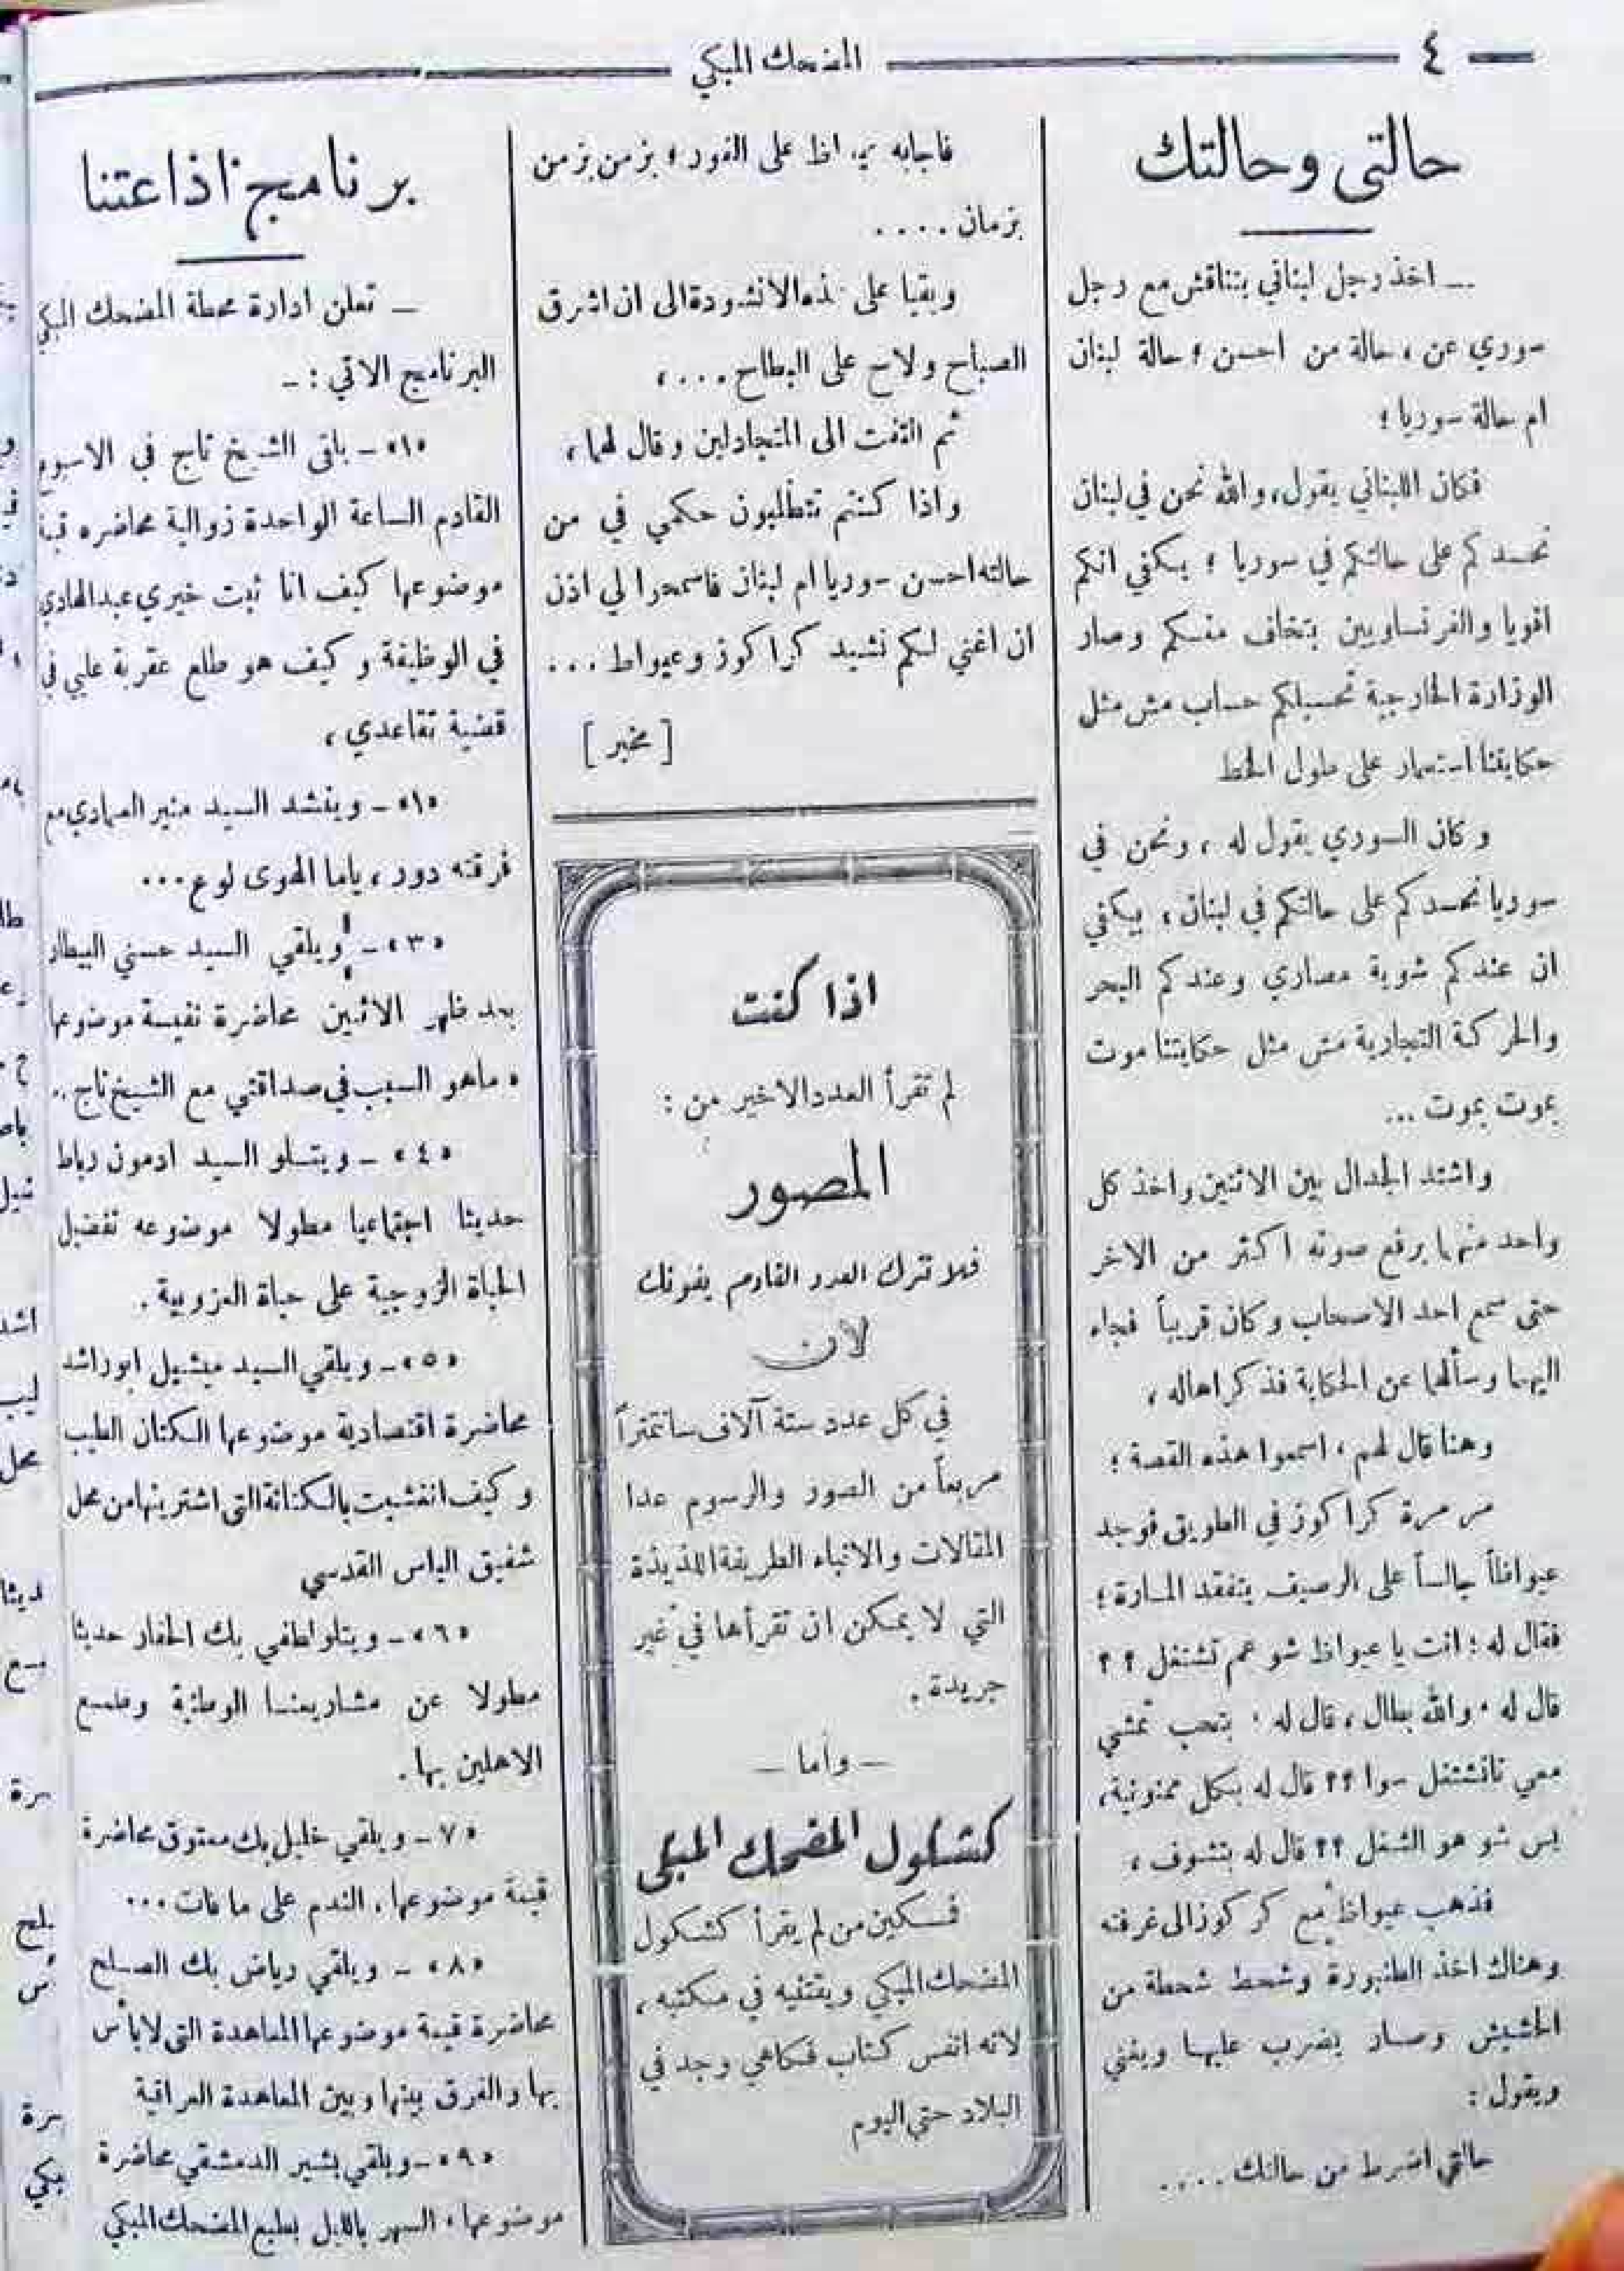 ٤
المضحك المبكي
حالتي وحالتك
ــ اخذ رجل لبناني يتناقش مع رجل
سوري عن ، حالة من احسن ؛ حالة لبنان
ام حالة سوريا ؛
فكان اللبناني يقول، والله نحن في لبنان
نحسدكم على حالتكم في سوريا ؛ يكفي انكم
اقويا والفرنساويين بتخاف منكم وصار
الوزارة الخارجية تحسبلكم حساب مش مثل
حكايتنا استعمار على طول الخط
وكان السوري يقول له ، ونحن في
سوريا نحسدكم على حالتكم في لبنان ، يكفي
ان عندكم شوية مصاري وعندكم البحر
والحركة التجارية مش مثل حكايتنا موت
بموت بموت ...
واشتد الجدال بين الاثنين واخذ كل
واحد منهما يرفع صوته اكثر من الاخر
حتى سمع احد الاصحاب وكان قريباً فجاء
اليهما وسألهما عن الحكاية فذكراها له ،
وهنا قال لهم ، اسمعوا هذه القصة ؛
مر مرة كراكوز في الطريق فوجد
عيواظاً جالساً على الرصيف يتفقد المارة ؛
فقال له ؛ انت يا عيواظ شو عم تشتغل ؟؟
قال له ، والله بطال ، قال له ، بتحب تمشي
معي تانشتغل سوا ؟؟ قال له بكل ممنونية،
بس شو هو الشغل ؟؟ قال له بتشوف ،
فذهب عيواظ مع كركوز الى غرفته
وهناك اخذ الطنبورة وشحط شحطة من
الحشيش وصار يضرب عليها ويغني
ويقول :
حالتي اضرط من حالتك ....
فاجابه عيواظ على الفور ؛ بزمن بزمن
بزمان ....
وبقيا على هذه الانشودة الى ان اشرق
الصباح ولاح على البطاح ... ،
ثم التفت الى المتجادلين وقال لهما ،
واذا كنتم تتطلبون حكمي في من
حالته احسن سوريا ام لبنان فاسمحوا لي اذن
ان اغني لكم نشيد كراكوز وعيواط ...
[ مخبر ]
اذا كنت
لم تقرأ العدد الاخير من :
المصور
فلا تترك العدد القادم يفوتك
لأن
في كل عدد ستة آلاف سانتمتراً
مربعاً من الصور والرسوم عدا
المقالات والانباء الطريفة اللذيذة
التي لا يمكن ان تقرأها في غير
جريدة .
ــ وأما ــ
كشكول المضحك المبكي
فمسكين من لم يقرأ كشكول
المضحك المبكي ويقتنيه في مكتبه ،
لانه انفس كتاب فكاهي وجد في
البلاد حتى اليوم
برنامج اذاعتنا
ــ تعلن ادارة محطة المضحك المبكي
البرنامج الاتي : ــ
«١» ــ يلقي الشيخ تاج في الاسبوع
القادم الساعة الواحدة زوالية محاضره قيمة
موضوعها كيف انا ثبت خيري عبد الهادي
في الوظيفة وكيف هو طلع عقربة علي في
قضية تقاعدي ،
«١» ــ وينشد السيد منير العبادي مع
فرقته دور ، ياما الهوى لوع ...
«٣» ــ ويلقي السيد حسني البيطار
بعد ظهر الاثنين محاضرة نفيسة موضوعها
« ما هو السبب في صداقتي مع الشيخ تاج ..
«٤» ــ ويتلو السيد ادمون رباط
حديثا اجتماعيا مطولا موضوعه تفضيل
الحياة الزوجية على حياة العزوبية .
«٥» ــ ويلقي السيد ميشيل ابو راشد
محاضرة اقتصادية موضوعها الكتان الطيب
وكيف انغشيت بالكتانة التي اشتريتها من محل
شفيق الياس القدسي
«٦» ــ ويتلو لطفي بك الحفار حديثا
مطولا عن مشاريعنا الوطنية وطمع
الاهلين بها .
«٧ ــ ويلقي خليل بك معتوق محاضرة
قيمة موضوعها ، الندم على ما فات ...
«٨» ــ ويلقي رياض بك الصلح
محاضرة قيمة موضوعها المعاهدة التي لا بأس
بها والفرق بينها وبين المعاهدة العراقية
«٩» ــ ويلقي بشير الدمشقي محاضرة
موضوعها ، السهر بالليل بطبع المضحك المبكي